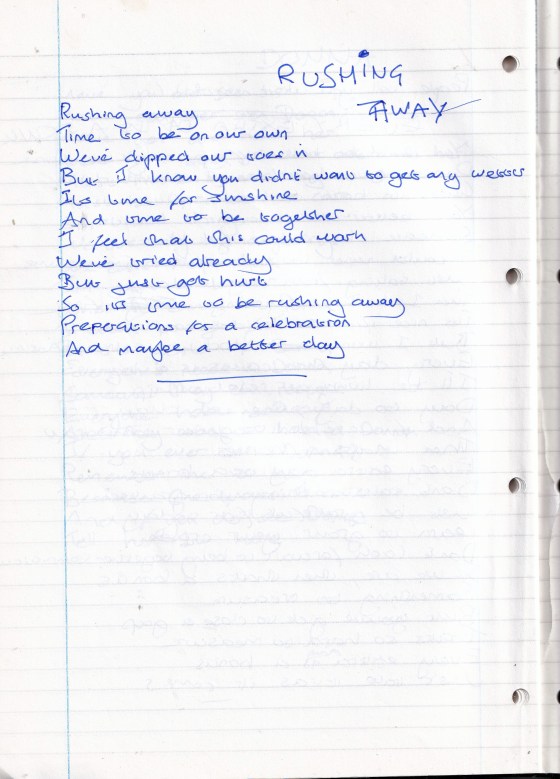 RUSHING
AWAY
Rushing away
Time to be on our own
We've dipped our toes in
But I know you didn't want to get any wetter
Its time for sunshine
And time to be together
I feel that this could work
We've tried already
But just got hurt
So its time to be rushing away
Preparations for a celebration
And maybe a better day